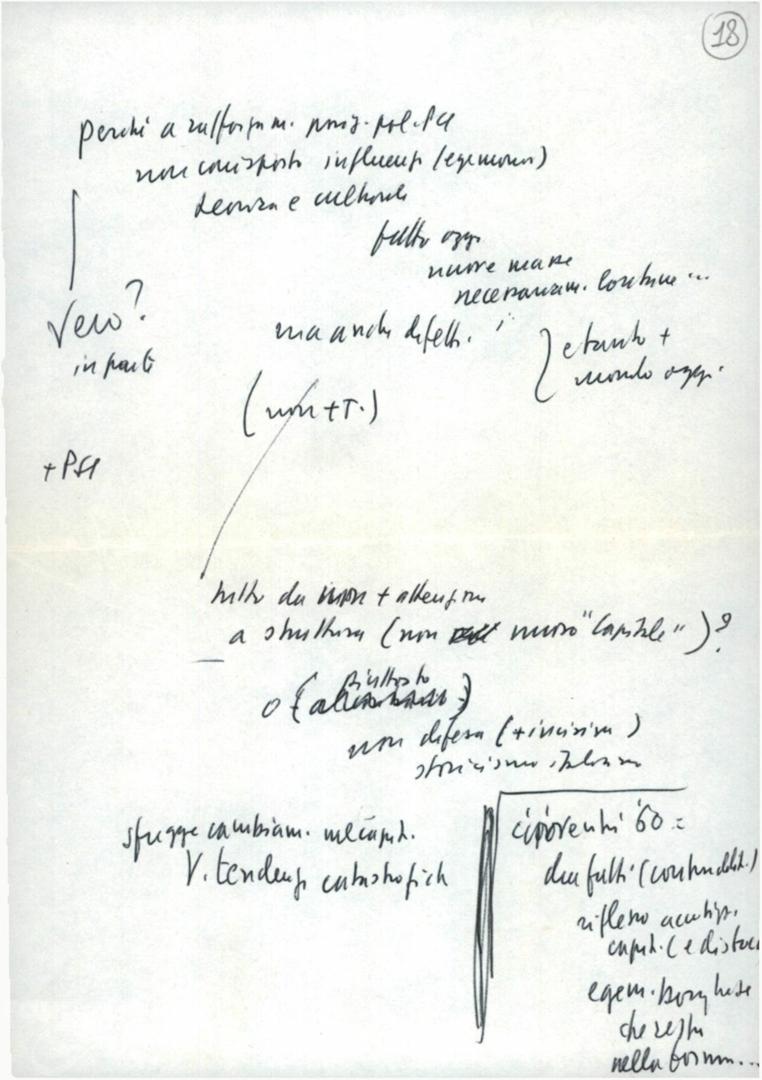 18
Perché a rafforzam. posiz. pol. PCI
non corrisposto influenza (egemonia)
teorica e culturale
fatto oggi
nuove masse
necessariam. confuse...
Vero?
in parte
ma anche difetti.
e tanto +
mondo oggi.
(non + T.)
+ PSI
tutto da non + attenzione
a struttura (non nuovo "Capitale")?
o (piuttosto)
non difesa (+ incisiva)
storicismo italiano
sfugge cambiam. nel capit.
V. tendenze catastrofich
anni '60 =
due fatti (contraddit.)
riflesso
capit. (e distacc
egem. borghese
che resta
nella